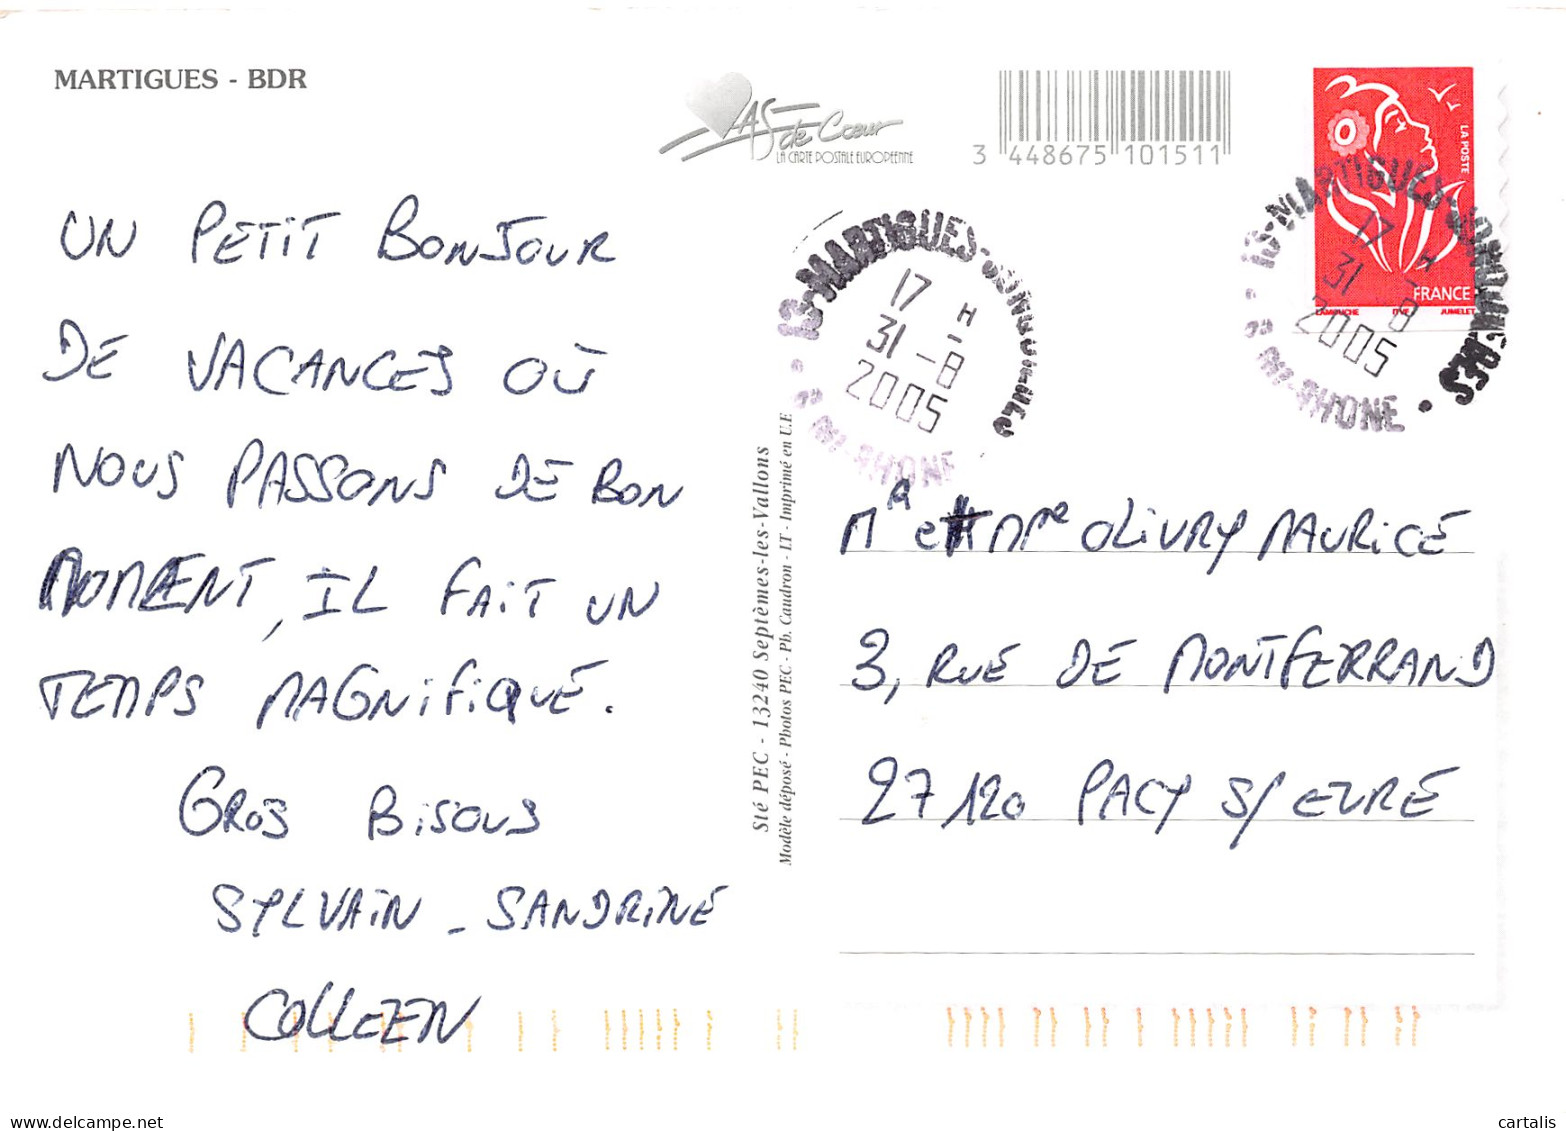 MARTIGUES - BDR
AS de Cœur
LA CARTE POSTALE EUROPEENNE
3 448675 101511
LA POSTE
FRANCE
LAMOUCHE ITVF JUMELET
13-MARTIGUES-JONQUIERES
17 H
31 - 8
2005
BS DU-RHONE
13-MARTIGUES-JONQUIERES
17 H
31 - 8
2005
BS DU-RHONE
UN PETIT BONJOUR
DE VACANCES OÙ
NOUS PASSONS DE BON
MOMENT, IL FAIT UN
TEMPS MAGNIFIQUE.
GROS BISOUS
SYLVAIN - SANDRINE
COLLEEN
Sté PEC - 13240 Septèmes-les-Vallons
Modèle déposé - Photos PEC - Ph. Caudron - I.T - Imprimé en U.E
MR et MME OLIVRY MAURICE
3, RUE DE MONTFERRAND
27120 PACY S/ EURE
cartalis